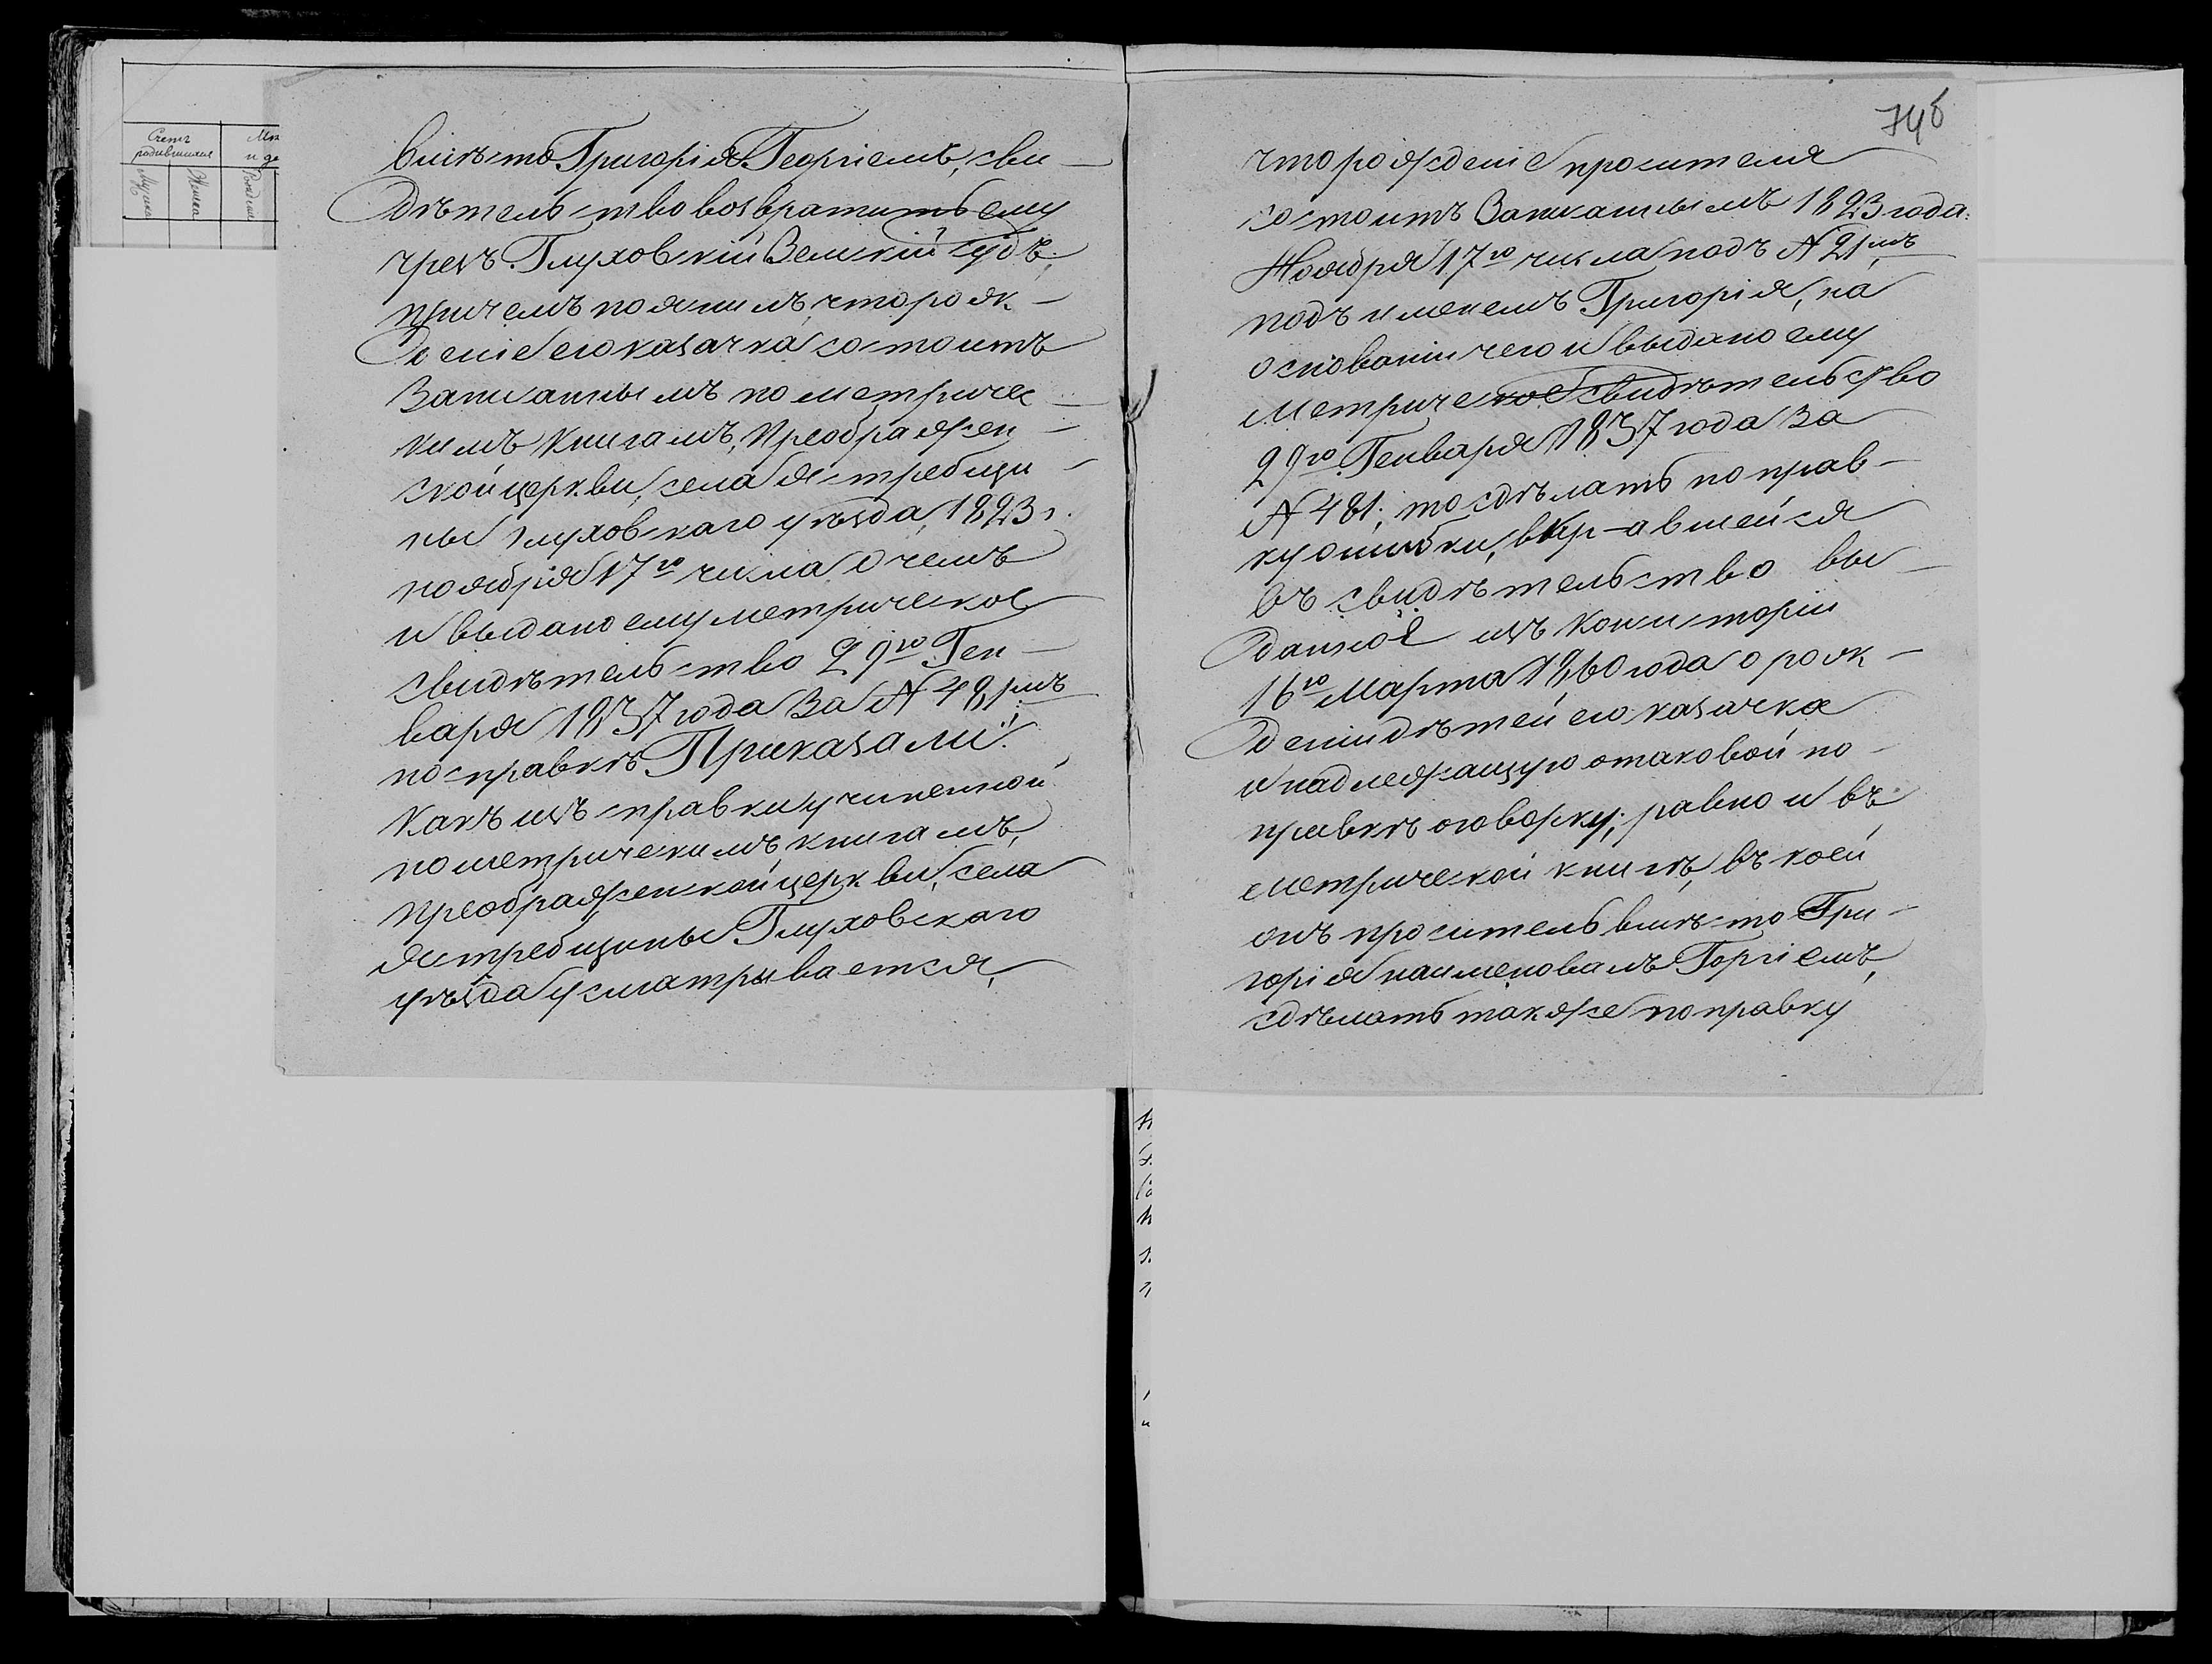 Счетъ
родившихся
Мужска
Женска
вмѣсто Григорія Георгіемъ, сви-
дѣтельство возвратить ему
чрезъ Глуховскій Земскій судъ;
причемъ пояснилъ, что рож-
деніе его казачка состоитъ
Записаннымъ по метричес-
кимъ Книгамъ, Преображен-
ской церкви, села Ястребщи-
ны Глуховскаго уѣзда, 1823 г.
ноября 17го числа о чемъ
и выдано ему метрическое
свидѣтельство 29го Ген-
варя 1837 года За № 481мъ
по справкѣ Приказали:
Какъ изъ справки учиненной
по метрическимъ книгамъ,
преображенской церкви, села
Ястребщины Глуховскаго
уѣзда усматрывается,
746
что рожденіе просителя
состоитъ Записаннымъ 1823 года:
Ноября 17го числа подъ № 21мъ
подъ именемъ Григорія, на
основаніи чего и выдано ему
метрическое свидѣтельство
29го Генваря 1837 года За
№ 481; то сдѣлать поправ-
ку ошибки, вкр-авшейся
въ свидѣтельство вы-
данное изъ Консисторіи
16го Марта 1860 года о рож-
деніи дѣтей его казачка
и надлежащую о таковой по-
правкѣ оговорку; равно и въ
метрической книгѣ, въ коей
онъ проситель вмѣсто Гри-
горія наименованъ Горгіемъ,
сдѣлать также поправку